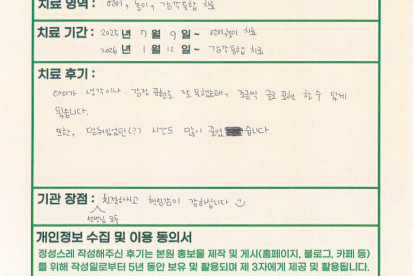 치료 영역 : 언어, 놀이, 감각통합 치료
치료 기간 : 2025년 7월 9일~ 언어놀이 치료
2026년 1월 12일~ 감각통합 치료
치료 후기 :
아이가 생각이나 감정 표현을 잘 못했는데, 조금씩 글로 표현 할 수 있게
됐습니다.
또한, 멈춰있었던(??) 시간도 많이 줄었습니다.
기관 장점 : 친절하시고 책임감이 강하십니다
선생님 모두
개인정보 수집 및 이용 동의서
정성스레 작성해주신 후기는 본원 홍보물 제작 및 게시(홈페이지, 블로그, 카페 등)
를 위해 작성일로부터 5년 동안 보유 및 활용되며 제 3자에게 제공 및 활용됩니다.